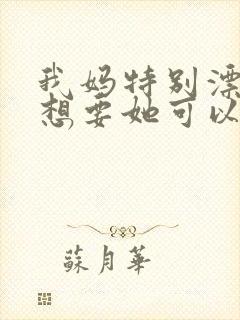 我妈特别漂
想要她可以
蘇月華